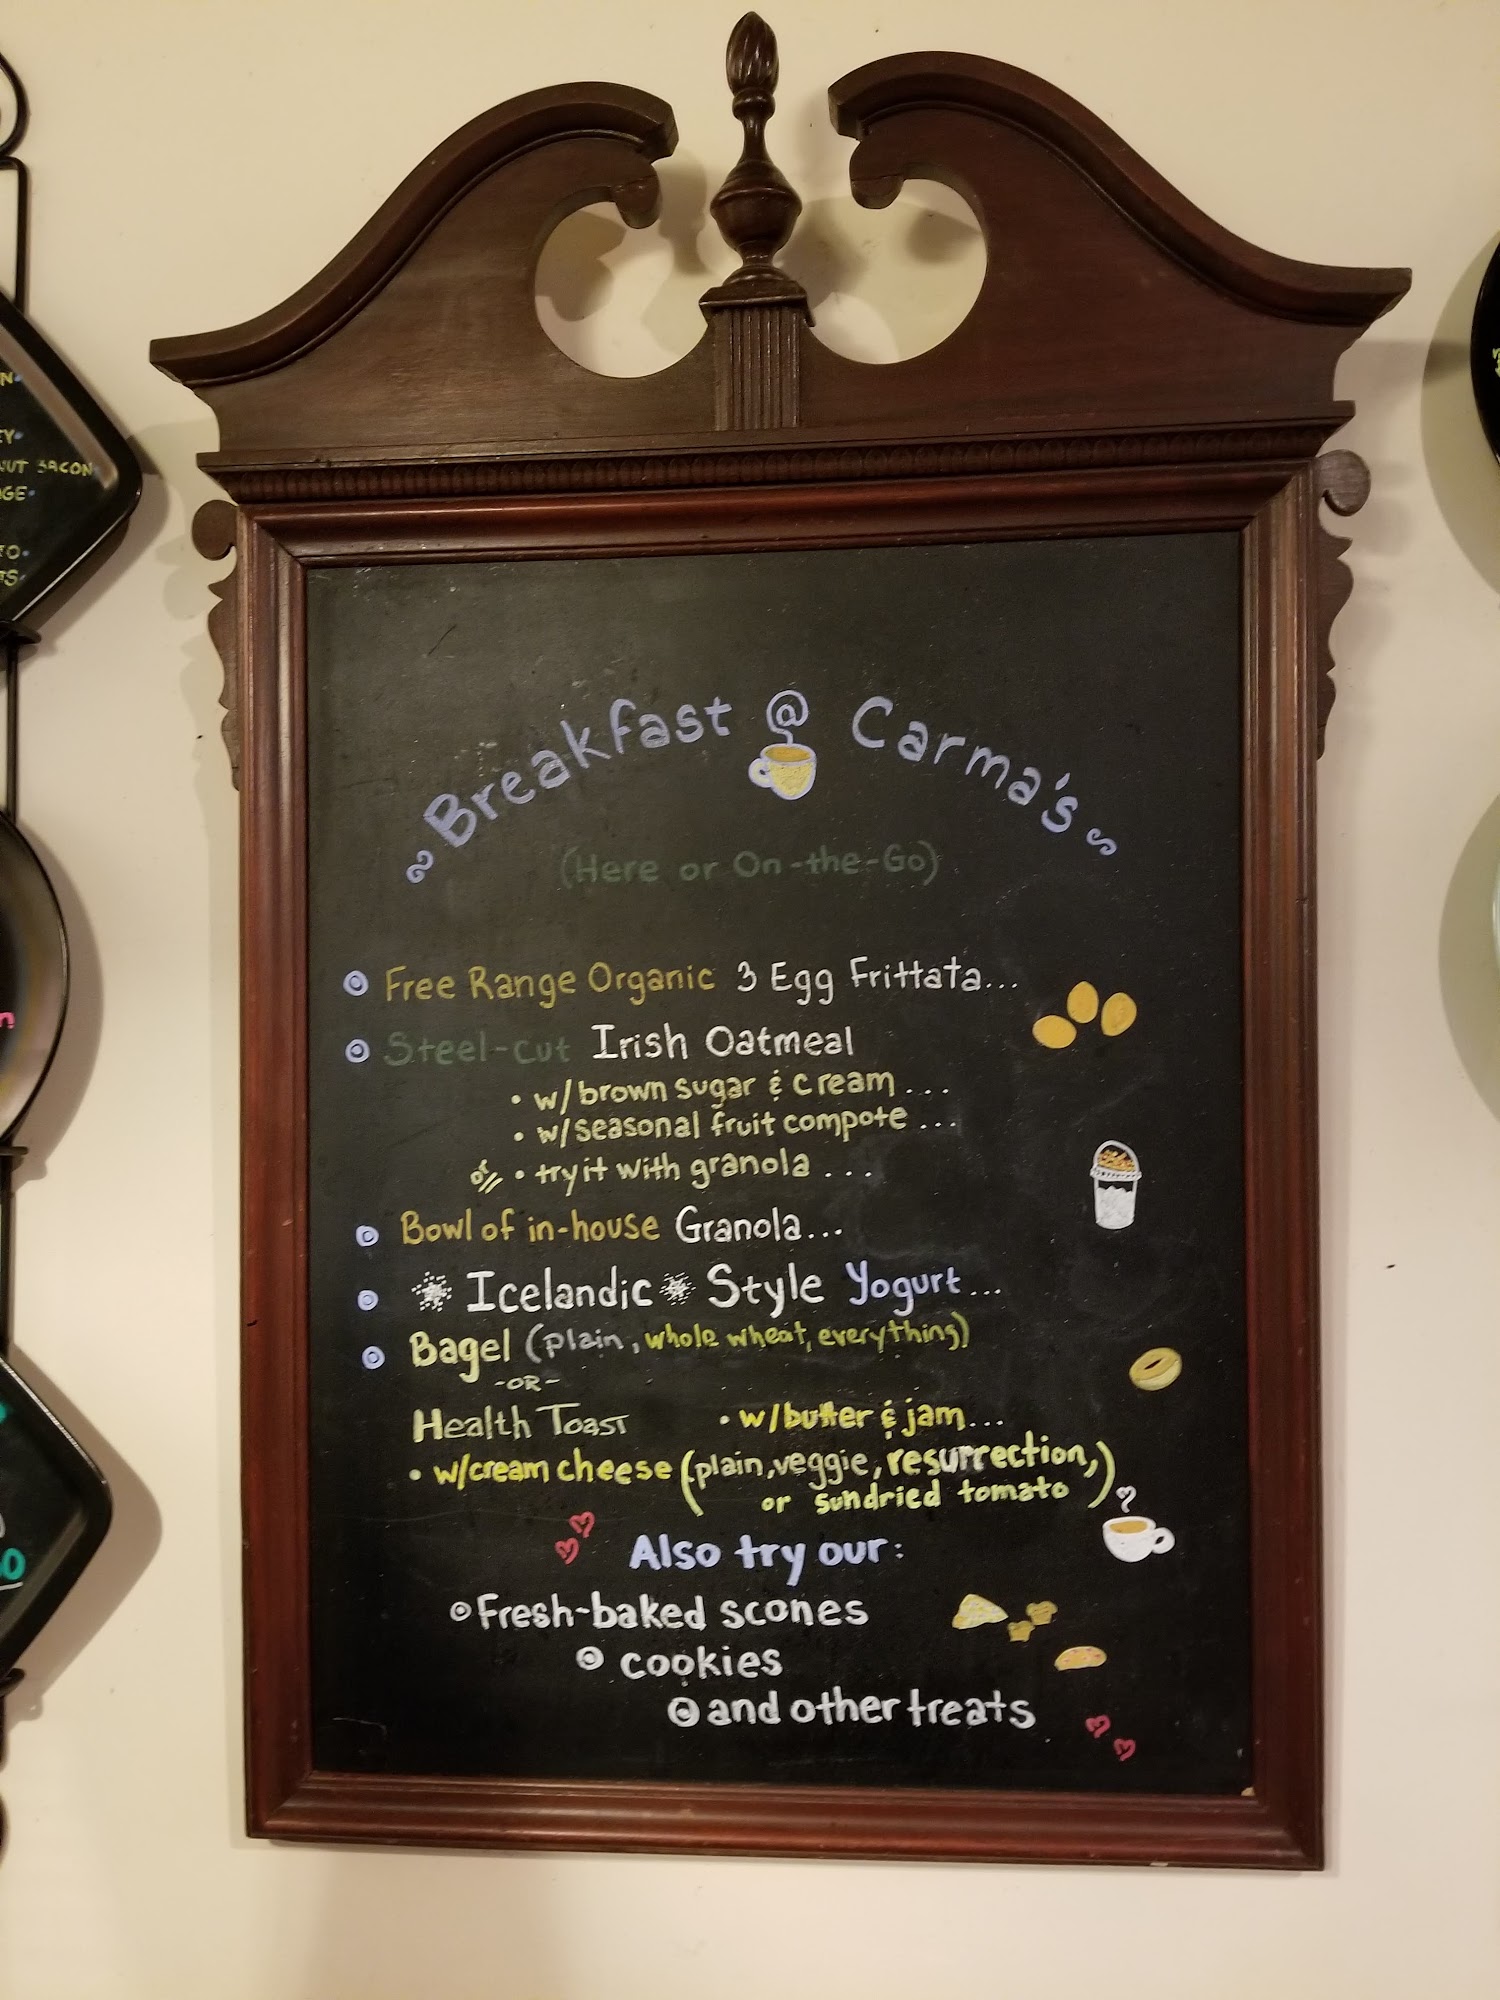 ~ Breakfast @ Carma's ~
(Here or On-the-Go)
Free Range Organic 3 Egg Frittata...
Steel-cut Irish Oatmeal
• w/brown sugar & cream ...
• w/seasonal fruit compote ...
• try it with granola ...
Bowl of in-house Granola...
Icelandic Style Yogurt...
Bagel (plain, whole wheat, everything)
-OR-
Health Toast • w/butter & jam...
• w/cream cheese (plain, veggie, resurrection,
or sundried tomato)
Also try our:
Fresh-baked scones
cookies
and other treats
NUT BACON